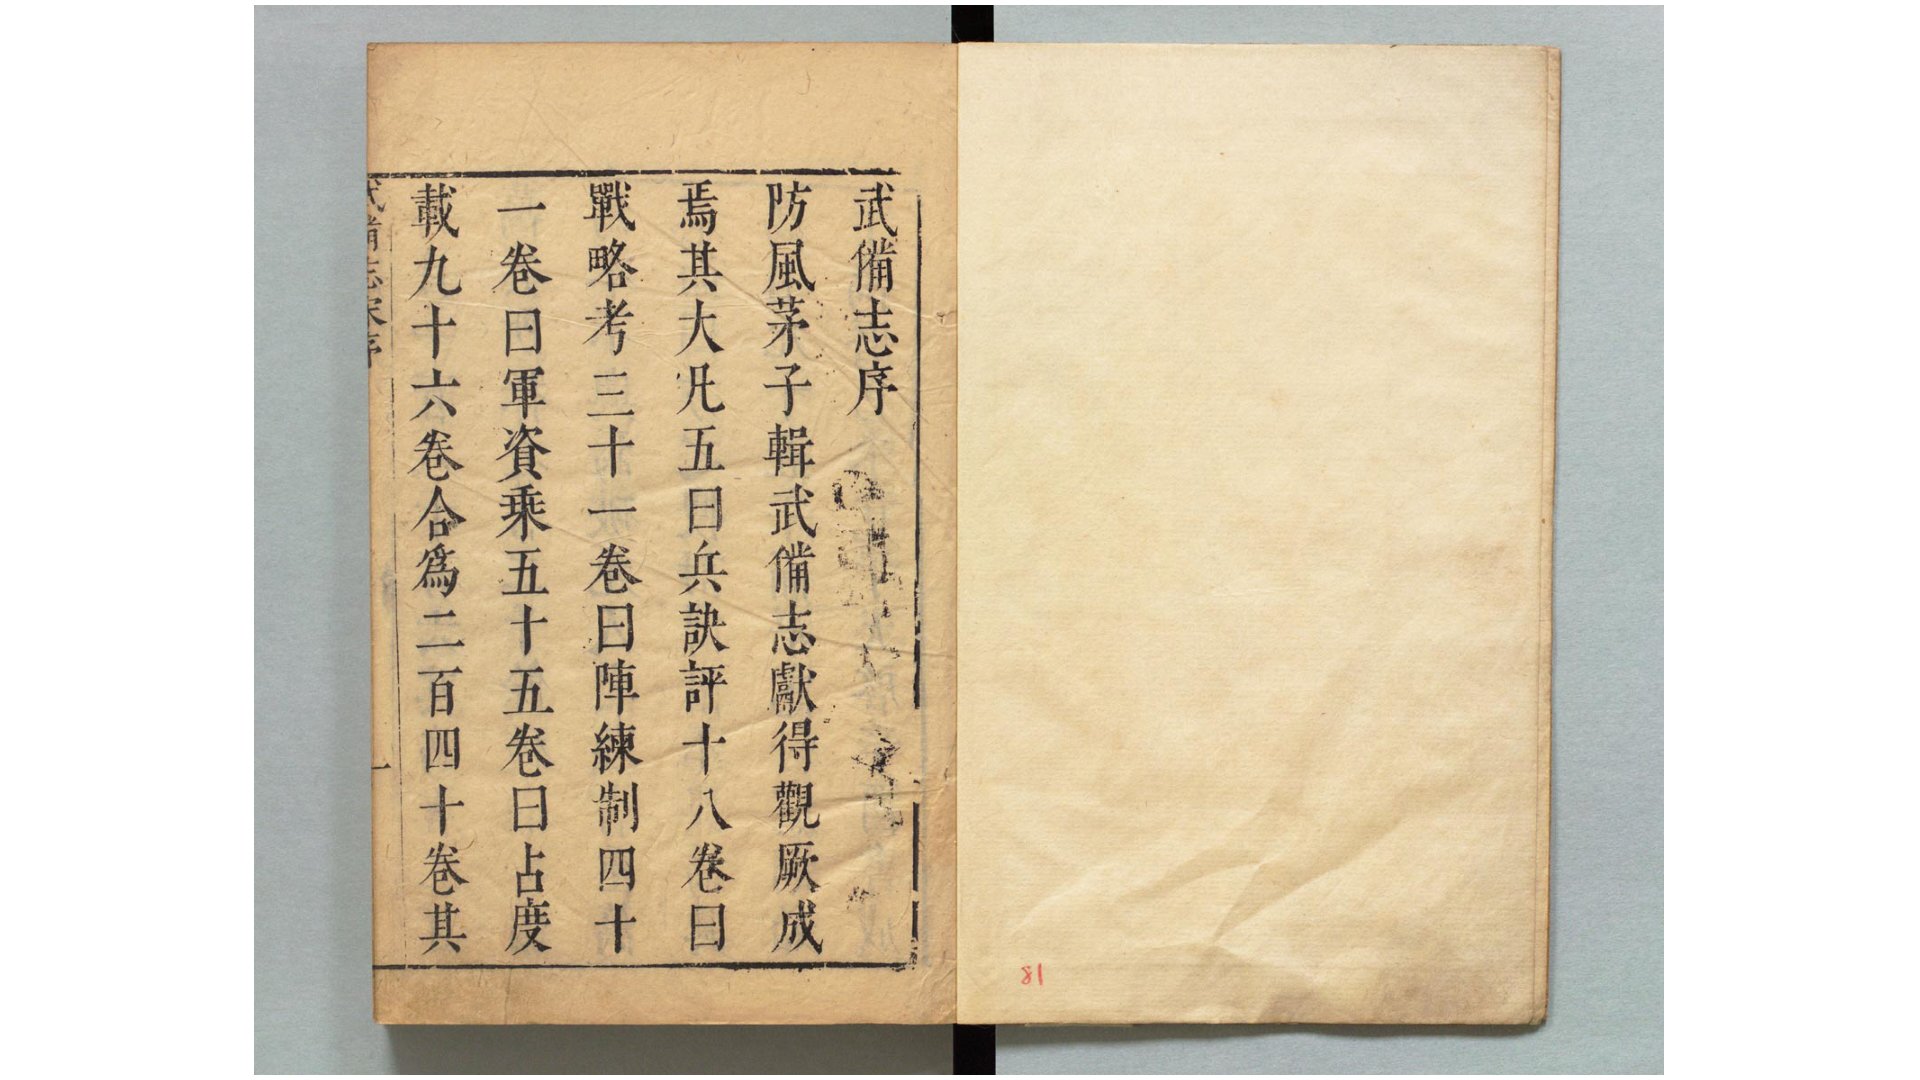 武備志序
防風茅子輯武備志獻得觀厥成
焉其大凡五曰兵訣評十八卷曰
戰略考三十一卷曰陣練制四十
一卷曰軍資乗五十五卷曰占度
載九十六卷合爲二百四十卷其
武備志宋序
一
81